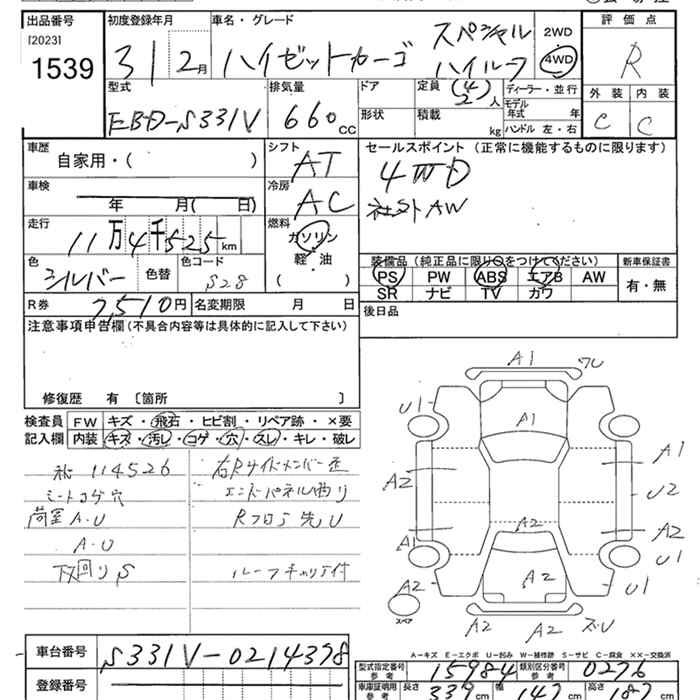 出品番号
[2023]
1539
初度登録年月
31 2月
車名・グレード
ハイゼットカーゴ
スペシャル
ハイルーフ
2WD
4WD
評価点
R
外装 内装
C C
型式
EBD-S331V
排気量
660cc
ドア
形状
定員 (4) 2人
積載 kg
ディーラー・並行
モデル年式 年
ハンドル 左・右
車歴
自家用・( )
シフト
AT
セールスポイント(正常に機能するものに限ります)
4WD
社外AW
車検
年 月( 日)
冷房
AC
走行
11万4千525km
燃料
ガソリン
軽・油
( )
色
シルバー
色替
色コード
S28
装備品(純正品に限り○をつけてください)
PS PW ABS エアB AW
SR ナビ TV カワ
新車保証書
有・無
R券 7,510円
名変期限 月 日
後日品
注意事項申告欄(不具合内容等は具体的に記入して下さい)
修復歴 有 〔箇所 〕
検査員記入欄
FW キズ・飛石・ヒビ割・リペア跡・×要
内装 キズ・汚レ・コゲ・穴・スレ・キレ・破レ
114526
シートコゲ穴
荷室A・U
A・U
下回りS
右Rサイドメンバー歪
エンドパネル凹り
Rフロア先U
ルーフキャリア付
A1
フU
U1
A1
A2
A1
U2
A2
A2
A1
U1
A2
A2
U1
スペア
A2
A2
ズU
A-キズ E-エクボ U-凹み W-補修跡 S-サビ C-腐食 ××-交換済
車台番号
S331V-0214398
登録番号
型式指定番号 参考
15984
類別区分番号 参考
0276
車庫証明用 参考
長さ 339cm
幅 147cm
高さ 187cm